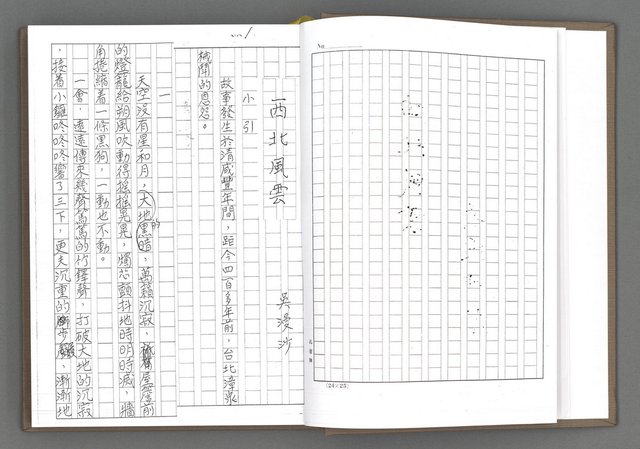 西北風雲
吳漫沙
小引
故事發生於清咸豐年間，距今四百多年前，台北漳泉
械鬥的恩怨。
一
天空沒有星和月，大地的黑暗，萬籟沉寂，屋簷前
的燈籠給朔風吹動得搖搖晃晃，燭芯顫抖地時明時滅，牆
角捲縮着一條黑狗，一動也不動。
一會，遠遠傳來幾聲篤篤的竹鐸聲，打破大地的沉寂
，接着小鑼咚咚咚響了三下，更夫沉重的腳步聲，漸漸地
No.
(24×25)